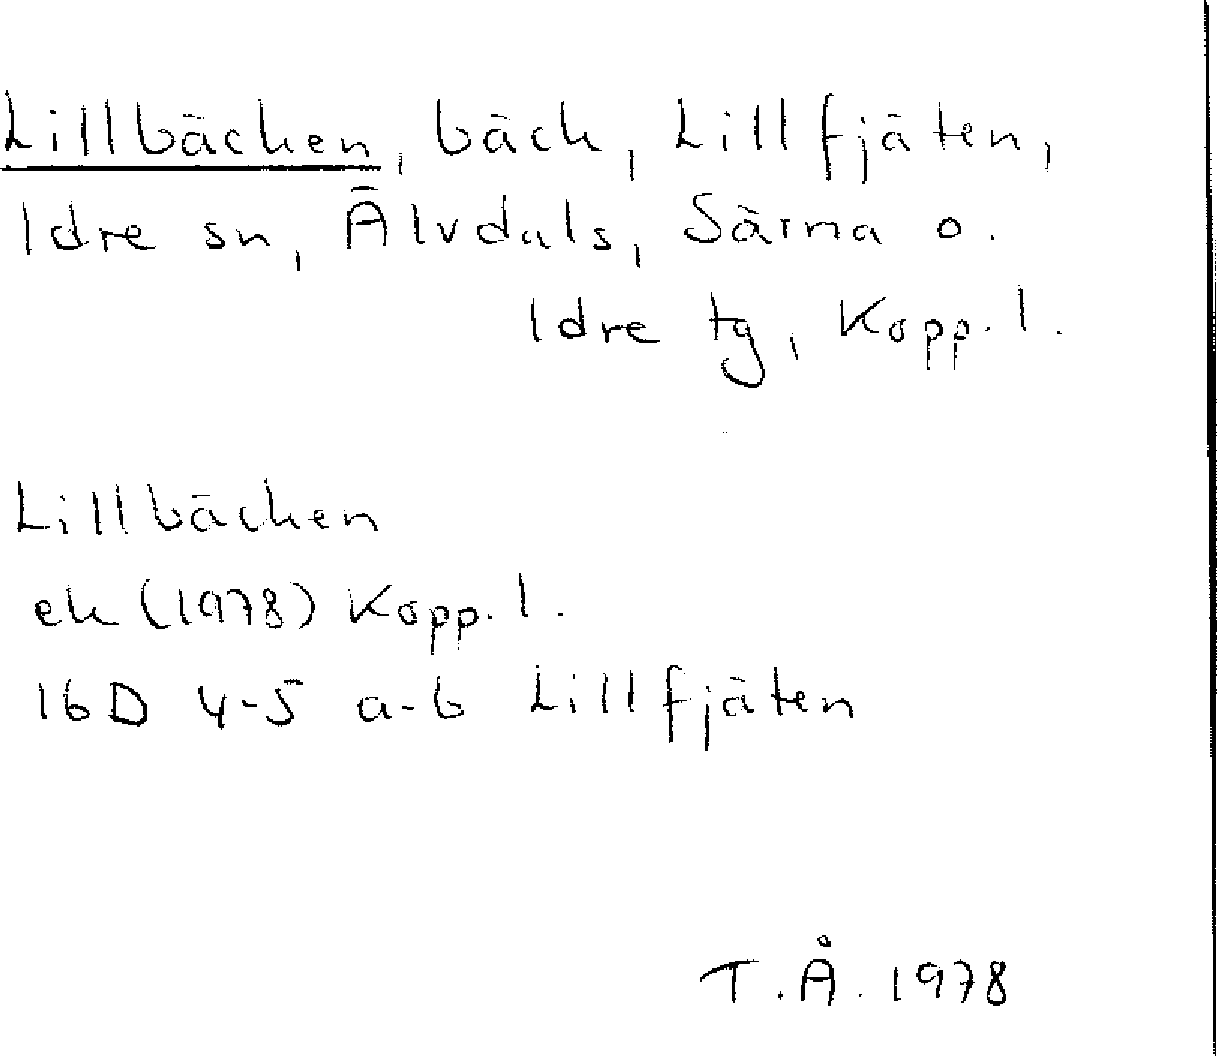 Lillbäcken, bäck, Lillfjäten,
Idre sn, Älvdals, Särna o.
Idre tg, Kopp. l.
Lillbäcken
ek (1978) Kopp. l.
16D 4-5 a-b Lillfjäten
T.Å. 1978